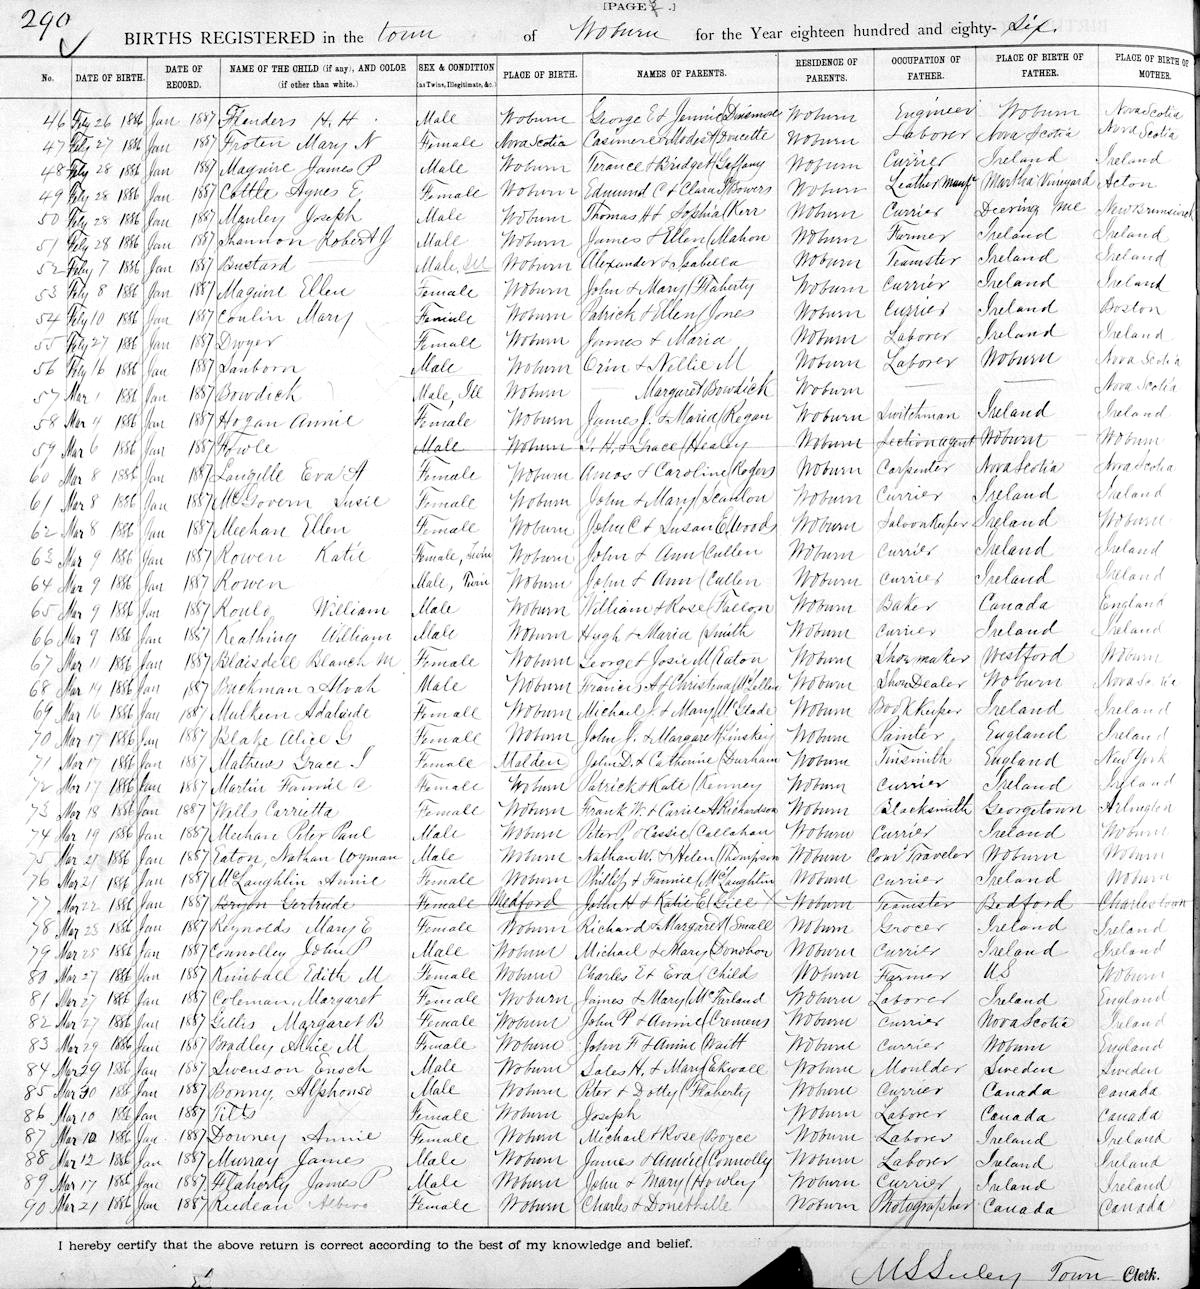 290
[PAGE 2.]
BIRTHS REGISTERED in the town of Woburn for the Year eighteen hundred and eighty- Six.
No. DATE OF BIRTH. DATE OF RECORD. NAME OF THE CHILD (if any), AND COLOR (if other than white.) SEX & CONDITION (as Twins, Illegitimate, &c.) PLACE OF BIRTH. NAMES OF PARENTS. RESIDENCE OF PARENTS. OCCUPATION OF FATHER. PLACE OF BIRTH OF FATHER. PLACE OF BIRTH OF MOTHER.
46 Feby 26 1886 Jan 1887 Flanders H. H. Male Woburn George E & Jennie (Dinsmore Woburn Engineer Woburn Nova Scotia
47 Feby 27 1886 Jan 1887 Froten Mary N Female Nova Scotia Casimere & Modest (Doucette Woburn Laborer Nova Scotia Nova Scotia
48 Feby 28 1886 Jan 1887 Maguire James P Male Woburn Terance & Bridget (Woburn Currier Ireland Ireland
49 Feby 28 1886 Jan 1887 Cottle Agnes E Female Woburn Edmund C & Clara F (Bowers Woburn Leather Manfr Martha Vineyard Acton
50 Feby 28 1886 Jan 1887 Manley Joseph Male Woburn Thomas H & Sophia (Kerr Woburn Currier Deering Me New Brunswick
51 Feby 28 1886 Jan 1887 Shannon Robert J Male Woburn James & Ellen (Mahon Woburn Farmer Ireland Ireland
52 Feby 7 1886 Jan 1887 Bustard Male, Ill Woburn Alexander & Isabella Woburn Teamster Ireland Ireland
53 Feby 8 1886 Jan 1887 Maguire Ellen Female Woburn John & Mary (Flaherty Woburn Currier Ireland Ireland
54 Feby 10 1886 Jan 1887 Conlin Mary Female Woburn Patrick & Ellen (Jones Woburn Currier Ireland Boston
55 Feby 27 1886 Jan 1887 Dwyer Female Woburn James & Maria Woburn Laborer Ireland Ireland
56 Feby 16 1886 Jan 1887 Sanborn Male Woburn Orin & Nellie M Woburn Laborer Woburn Nova Scotia
57 Mar 1 1886 Jan 1887 Bowdich Male, Ill Woburn — Margaret Bowdick Woburn — — Nova Scotia
58 Mar 4 1886 Jan 1887 Hogan Annie Female Woburn James J. & Maria (Regan Woburn Switchman Ireland Ireland
59 Mar 6 1886 Jan 1887 Fowle Male Woburn G. H. & Grace (Healey Woburn Section agent Woburn Woburn
60 Mar 8 1886 Jan 1887 Langille Eva A Female Woburn Amos & Caroline (Rogers Woburn Carpenter Nova Scotia Nova Scotia
61 Mar 8 1886 Jan 1887 McGovern Susie Female Woburn John & Mary (Scanlon Woburn Currier Ireland Ireland
62 Mar 8 1886 Jan 1887 Meehan Ellen Female Woburn John C & Susan E (Woods Woburn Saloon Keeper Ireland Woburn
63 Mar 9 1886 Jan 1887 Rowen Katie Female, Twin Woburn John & Ann (Cullen Woburn Currier Ireland Ireland
64 Mar 9 1886 Jan 1887 Rowen Male, Twin Woburn John & Ann (Cullen Woburn Currier Ireland Ireland
65 Mar 9 1886 Jan 1887 Roulo William Male Woburn William & Rose (Fallon Woburn Baker Canada England
66 Mar 9 1886 Jan 1887 Keathing William Male Woburn Hugh & Maria (Smith Woburn Currier Ireland Ireland
67 Mar 11 1886 Jan 1887 Blaisdell Blanch M Female Woburn George & Josie M (Eaton Woburn Shoemaker Westford Woburn
68 Mar 14 1886 Jan 1887 Buckman Alvah Male Woburn Francis A & Christena (McLellen Woburn Shoe Dealer Woburn Nova Scotia
69 Mar 16 1886 Jan 1887 Mulkeen Adelaide Female Woburn Michael J. & Mary (McGlade Woburn Book Keeper Ireland Ireland
70 Mar 17 1886 Jan 1887 Blake Alice G Female Woburn John J. & Margaret (Linskey Woburn Painter England Ireland
71 Mar 17 1886 Jan 1887 Mathews Grace I Female Malden John D. & Catherine (Durham Woburn Tinsmith England New York
72 Mar 17 1886 Jan 1887 Martin Fannie A Female Woburn Patrick & Kate (Kenney Woburn Currier Ireland Ireland
73 Mar 18 1886 Jan 1887 Wills Carrietta Female Woburn Frank W. & Carrie A (Richardson Woburn Blacksmith Georgetown Arlington
74 Mar 19 1886 Jan 1887 Meehan Peter Paul Male Woburn Peter J & Cassie (Callahan Woburn Currier Ireland Woburn
75 Mar 21 1886 Jan 1887 Eaton, Nathan Wyman Male Woburn Nathan W. & Helen (Thompson Woburn Coml Traveler Woburn Woburn
76 Mar 21 1886 Jan 1887 McLaughlin Annie Female Woburn Phillip & Fannie (McLaughlin Woburn Currier Ireland Woburn
77 Mar 22 1886 Jan 1887 Gertrude Female Medford John H & Katie E (Gill Woburn Teamster Bedford Charlestown
78 Mar 23 1886 Jan 1887 Reynolds Mary E Female Woburn Richard & Margaret (Small Woburn Grocer Ireland Ireland
79 Mar 25 1886 Jan 1887 Connolley John P Male Woburn Michael & Mary (Donohoe Woburn Currier Ireland Ireland
80 Mar 27 1886 Jan 1887 Kimball Edith M Female Woburn Charles E & Eva (Child Woburn Farmer US Woburn
81 Mar 27 1886 Jan 1887 Coleman Margaret Female Woburn James & Mary (McFarland Woburn Laborer Ireland England
82 Mar 27 1886 Jan 1887 Gillis Margaret B Female Woburn John P & Annie (Cremens Woburn Currier Nova Scotia Ireland
83 Mar 29 1886 Jan 1887 Bradley Alice M Female Woburn John F & Annie (Waitt Woburn Currier Woburn England
84 Mar 29 1886 Jan 1887 Swenson Enoch Male Woburn H. & Mary (Ekwall Woburn Moulder Sweden Sweden
85 Mar 30 1886 Jan 1887 Bonny Alphonso Male Woburn Peter & Dolly (Flaherty Woburn Currier Canada Canada
86 Mar 10 1886 Jan 1887 Pitts Female Woburn Joseph Woburn Laborer Canada Canada
87 Mar 12 1886 Jan 1887 Downey Annie Female Woburn Michael & Rose (Boyce Woburn Laborer Ireland Ireland
88 Mar 12 1886 Jan 1887 Murray James Male Woburn James & Annie (Connolly Woburn Laborer Ireland Ireland
89 Mar 17 1886 Jan 1887 Flaherty James P Male Woburn John & Mary (Howley Woburn Currier Ireland Ireland
90 Mar 21 1886 Jan 1887 Female Woburn Charles & Donethelle Woburn Photographer Canada Canada
I hereby certify that the above return is correct according to the best of my knowledge and belief.
M S Seeley Town Clerk.